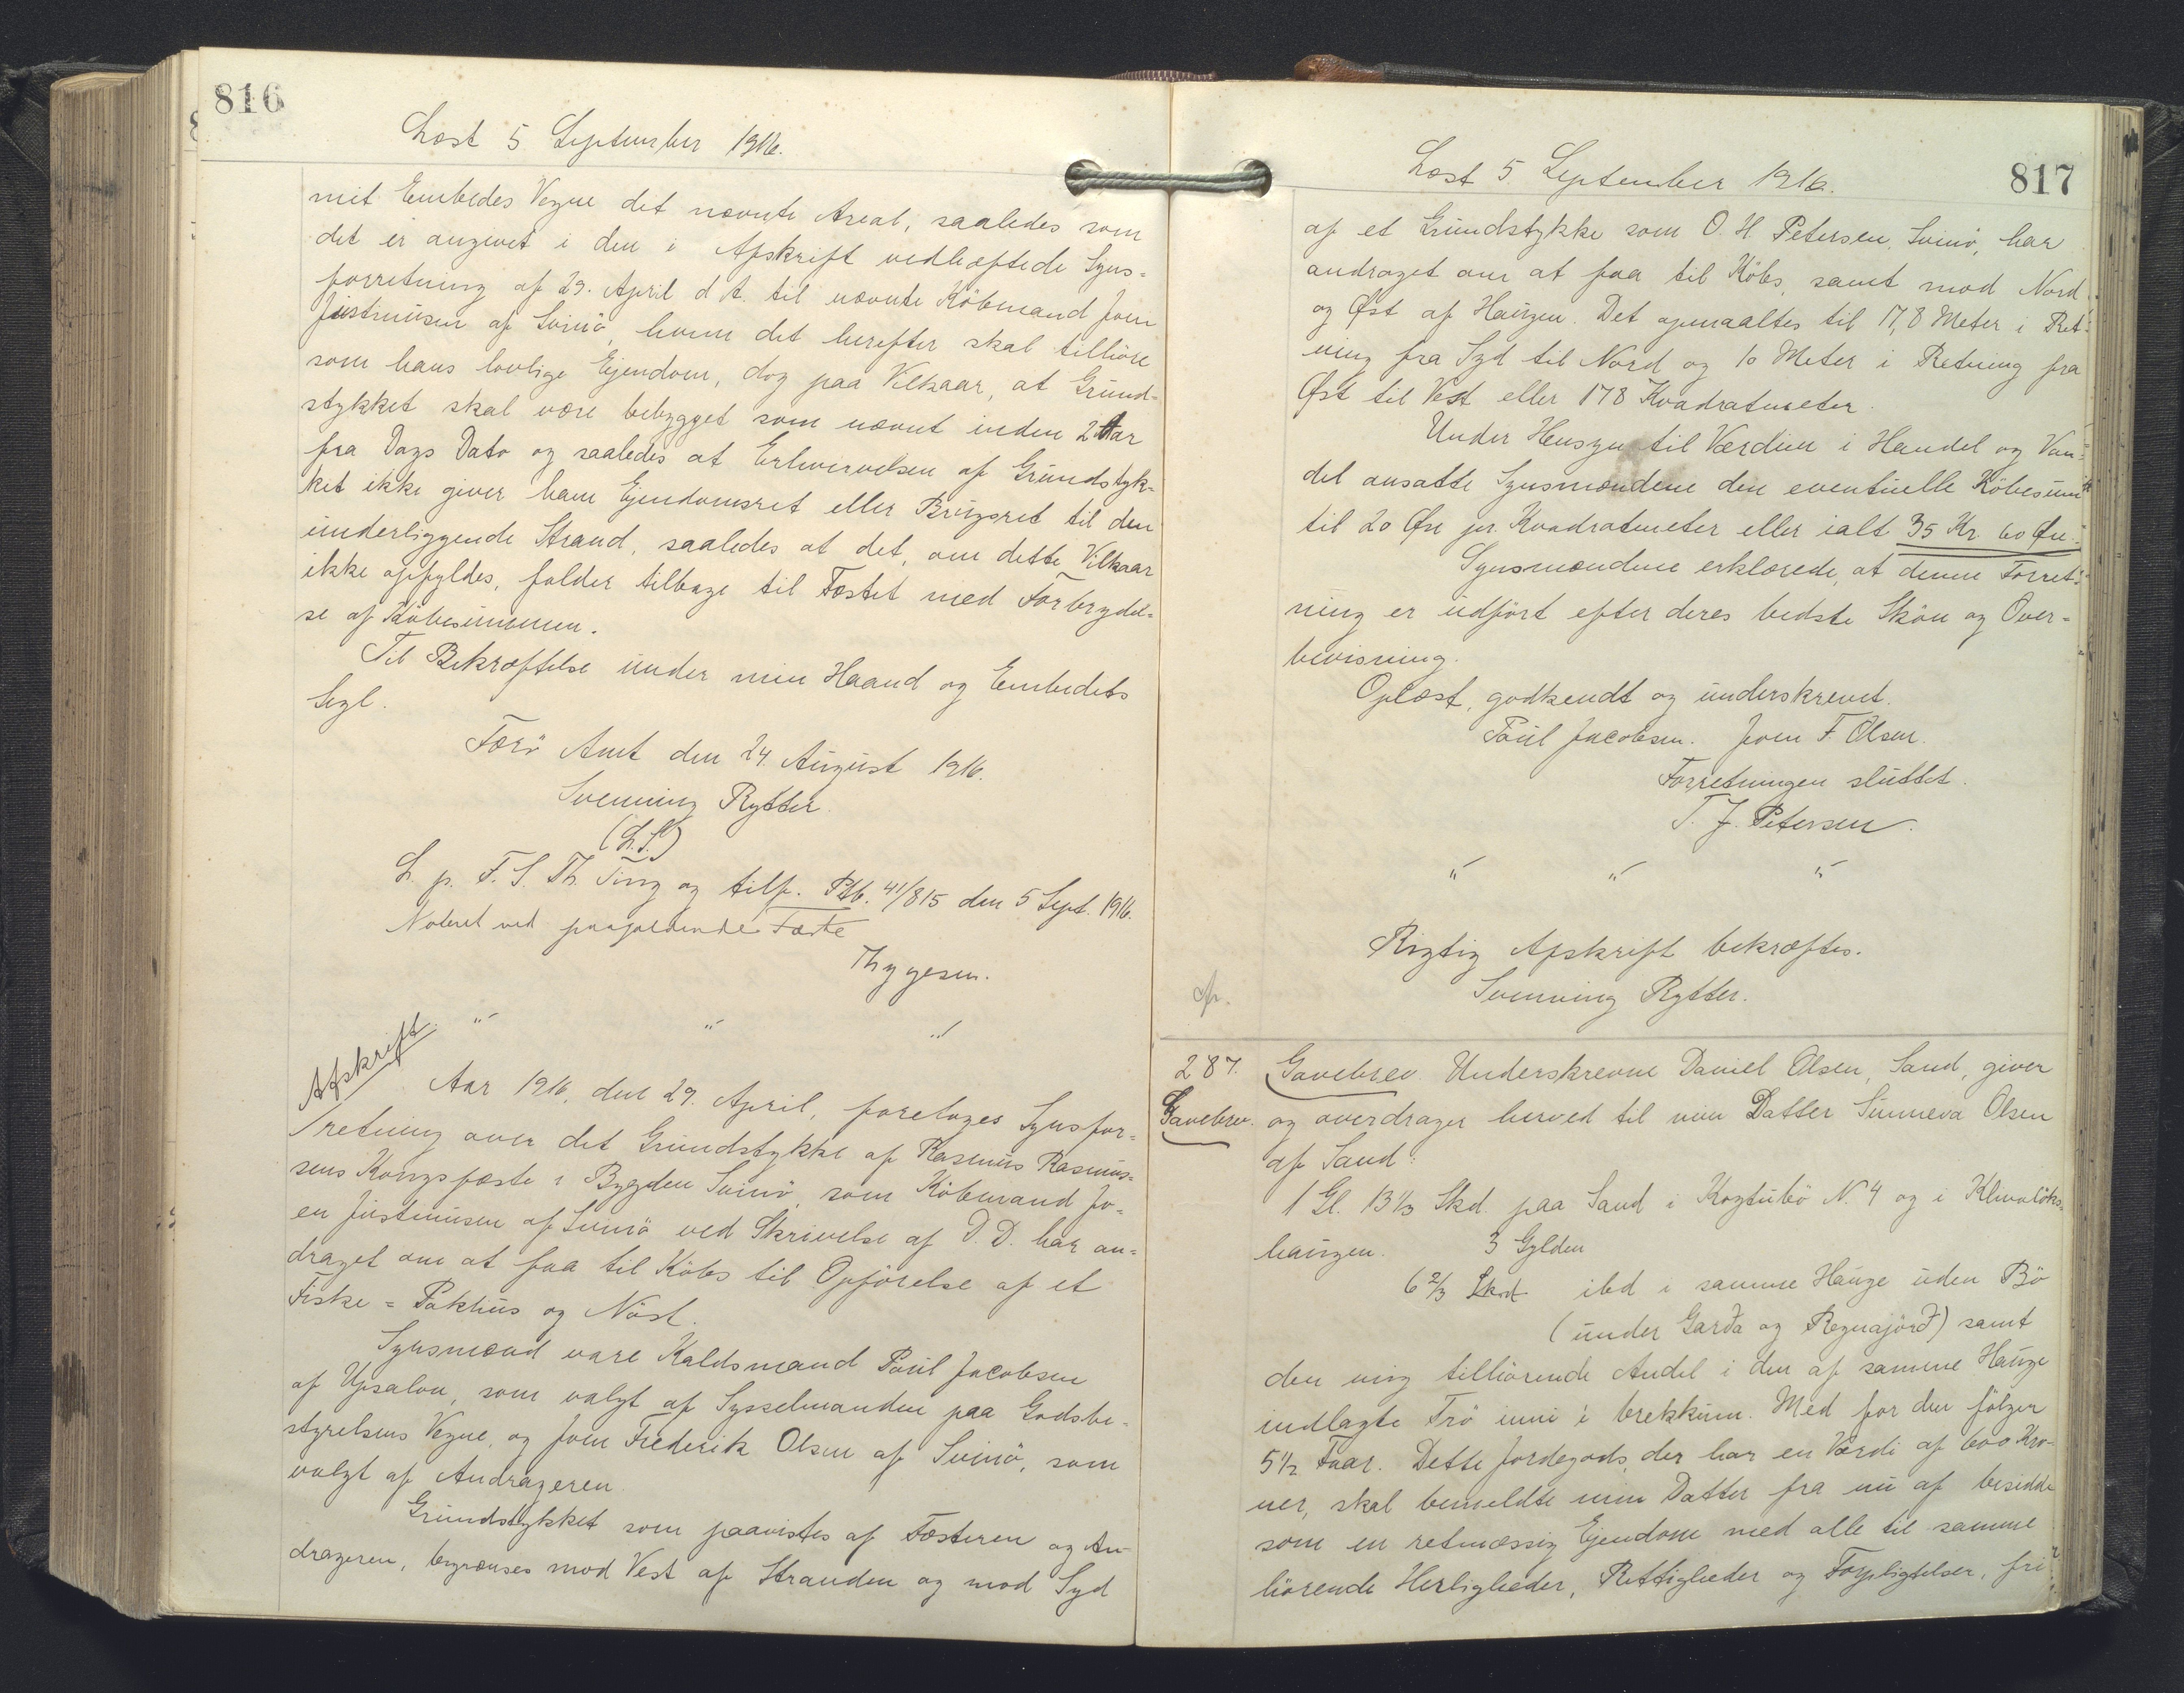 816
Læst 5 September 1916.
mit Embedes Vegne det nævnte Areal, saaledes som
det er angivet i den i Afskrift vedhæftede Syns=
forretning af 29. April d A. til nævnte Köbmand Joen
Justinusen af Svinö, hvem det herefter skal tilhöre
som hans lovlige Ejendom, dog paa Vilkaar, at Grund=
stykket skal være bebygget som nævnt inden 2 Aar
fra Dags Dato og saaledes at Erhvervelsen af Grundstyk=
ket ikke giver ham Ejendomsret eller Brugsret til den
underliggende Strand, saaledes at det, om dette Vilkaar
ikke opfyldes, falder tilbage til Fæstet med Forbrydel=
se af Köbesummen.
Til Bekræftelse under min Haand og Embedets
Segl.
Færö Amt den 24. August 1916.
Svenning Rytter.
(L.S.)
L. p. F. S. Th. Ting og tilf. Ptb. 41/815 den 5 Sept. 1916.
Noteret ved paagældende Fæste
Thygesen.
" " "
Afskrift.
Aar 1916, den 29. April, foretoges Synsfor=
retning over det Grundstykke af Rasmus Rasmus=
sens Kongsfæste i Bygden Svinö, som Köbmand Jo=
en Justinusen af Svinö ved Skrivelse af D. D. har an=
draget om at faa til Köbs til Opförelse af et
Fiske = Pakhus og Nöst.
Synsmænd vare Kaldsmand Poul Jacobsen
af Upsalon, som valgt af Sysselmanden paa Godsbe=
styrelsens Vegne, og Joen Frederik Olsen af Svinö, som
valgt af Andrageren.
Grundstykket som paavistes af Fæsteren og An=
drageren, begrænses mod Vest af Stranden og mod Syd
817
Læst 5 September 1916.
af et Grundstykke som O. H Petersen, Svinö, har
andraget om at faa til Köbs, samt mod Nord
og Øst af Haugen. Det opmaaltes til 17,8 Meter i Ret=
ning fra Syd til Nord og 10 Meter i Retning fra
Øst til Vest eller 178 Kvadratmeter.
Under Hensyn til Værdien i Handel og Van=
del ansatte Synsmændene den eventuelle Köbesum
til 20 Øre pr. Kvadratmeter eller ialt 35 Kr. 60 Øre.
Synsmændene erklærede, at denne Forret=
ning er udfört efter deres bedste Skön og Over=
bevisning.
Oplæst, godkendt og underskrevet.
Poul Jacobsen. Joen F. Olsen.
Forretningen sluttet.
T. J. Petersen.
" " "
Rigtig Afskrift bekræftes.
Svenning Rytter.
287. Gavebrev. Underskrevne Daniel Olsen, Sand, giver
Gavebrev. og overdrager herved til min Datter Sunneva Olsen
af Sand:
1 Gl. 13 1/3 Skd. paa Sand i Kogtubö N. 4 og i Klivalöks=
haugen. 3 Gylden
6 2/3 Skd ibd i samme Hauge uden Bö
(under Garða og Regnajörð) samt
den mig tilhörende Andel i den af samme Hauge
indlagte Trö inni i brekkum. Med for den fölger
5 1/2 Faar. Dette Jordegods, der har en Værdi af 600 Kro=
ner, skal bemeldte min Datter fra nu af besidde
som en retmæssig Ejendom med alle til samme
hörende Herligheder, Rettigheder og Forpligtelser, fri